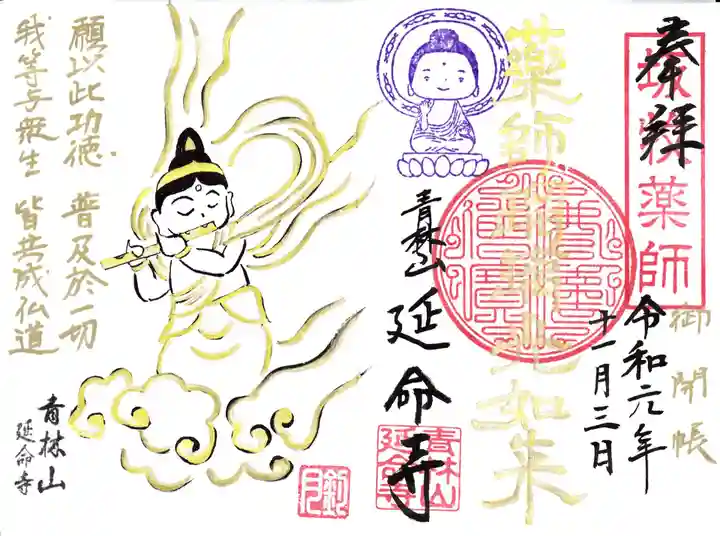 奉拝
薬師
御開帳
令和元年
十一月三日
薬師瑠璃光如来
青林山
延命寺
青林山
延命寺
願以此功徳 普及於一切
我等与衆生 皆共成仏道
青林山
延命寺